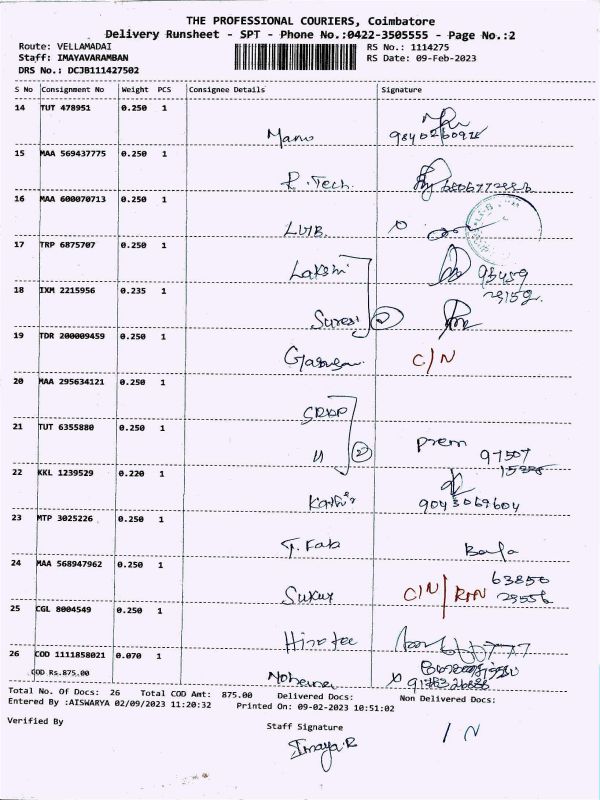 THE PROFESSIONAL COURIERS, Coimbatore
Delivery Runsheet - SPT - Phone No.:0422-3505555 - Page No.:2
Route: VELLAMADAI RS No.: 1114275
Staff: IMAYAVARAMBAN RS Date: 09-Feb-2023
DRS No.: DCJB111427502
S No Consignment No Weight PCS Consignee Details Signature
14 TUT 478951 0.250 1
Mano
15 MAA 569437775 0.250 1
R. Tech.
16 MAA 600070713 0.250 1
LVB.
17 TRP 6875707 0.250 1
Lakshi 93459
18 IXM 2215956 0.235 1 29152.
Suresi 2
19 TDR 200009459 0.250 1
C/N
20 MAA 295634121 0.250 1
21 TUT 6355880 0.250 1
prem
11 2 97507
22 KKL 1239529 0.220 1
Kathir 9043069604
23 MTP 3025226 0.250 1
T. Fab
24 MAA 568947962 0.250 1
63856
C/N / RTN
25 CGL 8004549 0.250 1
26 COD 1111858021 0.070 1
COD Rs.875.00
Total No. Of Docs: 26 Total COD Amt: 875.00 Delivered Docs: Non Delivered Docs:
Entered By :AISWARYA 02/09/2023 11:20:32 Printed On: 09-02-2023 10:51:02
Verified By Staff Signature
Imaya.R